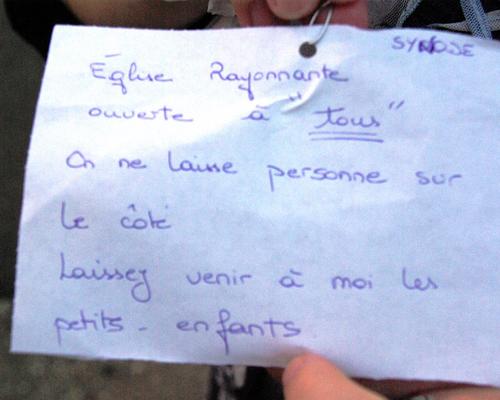 SYNODE
Église Rayonnante
ouverte à "tous"
On ne laisse personne sur
le côté
Laissez venir à moi les
petits - enfants